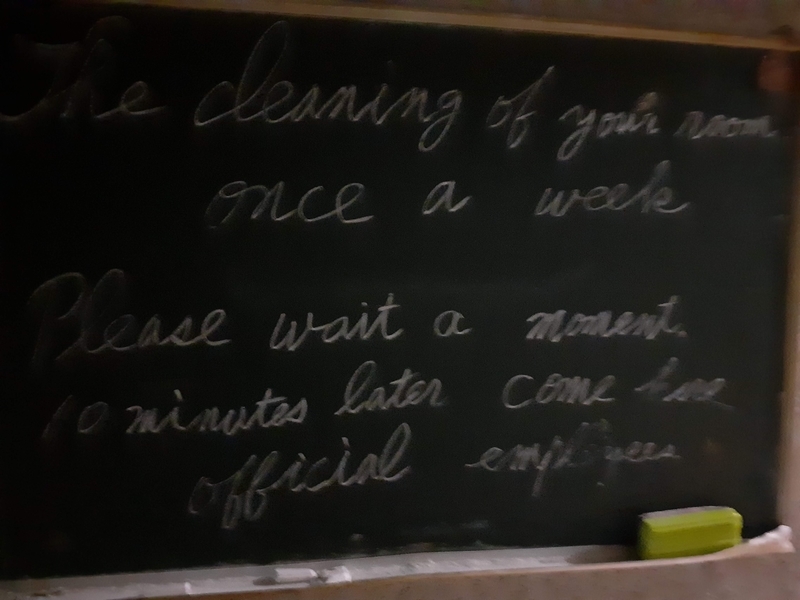 The cleaning of your room
once a week
Please wait a moment.
10 minutes later come
official employees